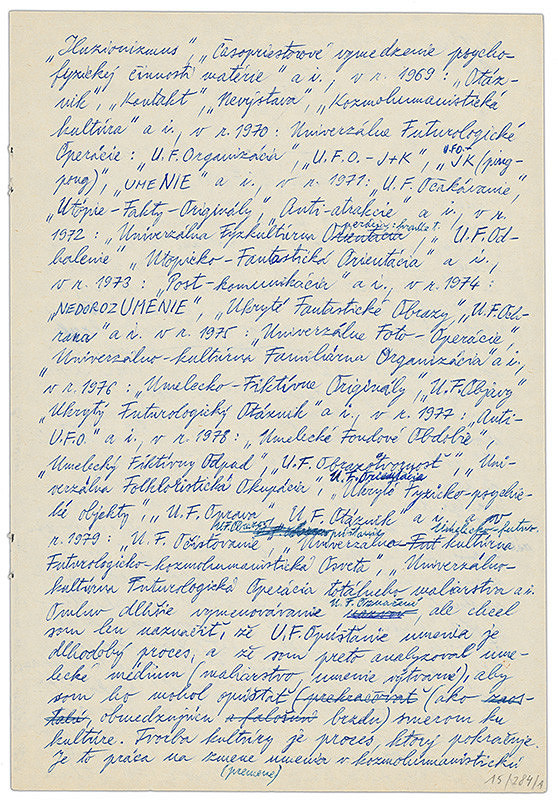 „Iluzionizmus", „Časopriestorové vymedzenie psycho-
fyzickej činnosti matérie" a i., v r. 1969: „Otáz-
nik", „Kontakt", „Nevýstava", „Kozmohumanistická
kultúra" a i., v r. 1970: Univerzálne Futurologické
Operácie: „U.F.Organizácia", „U.F.O.-J+K", „U.F.O.-JK (ping-
pong)", „UMENIE" a i., v r. 1971: „U.F.Očakávanie",
„Utópie-Fakty-Originály", „Anti-atrakcie" a i., v r.
1972: „Univerzálna Fyzkultúrna Orientácia", „U.F.Od-
balenie" „Utopicko-Fantastická Orientácia" a i.,
v r. 1973: „Post-komunikácia" a i., v r. 1974:
„NEDOROZUMENIE", „Ukryté Fantastické Obrazy", „U.F.Och-
rana" a i. v r. 1975: „Univerzálne Foto-Operácie",
„Univerzálno-kultúrna Familiárna Organizácia" a i.,
v r. 1976: „Umelecko-Fiktívne Originály", „U.F.Objavy"
„Ukrytý Futurologický Otáznik" a i., v r. 1977: „Anti-
U.F.O." a i., v r. 1978: „Umelecké Fondové Obdobie",
„Umelecký Fiktívny Odpad", „U.F.Obrazotvornosť", „Uni-
verzálna Folkloristická Okupácia", „U.F.Orientácia „Ukryté Fyzicko-psychic-
ké objekty", „U.F.Oprava", „U.F.Otáznik" a i. a v
r. 1979: „U.F.Očistovanie", „Univerzálno-Fut kultúrna
Futurologicko-kozmohumanistická Osveta", „Univerzálno-
kultúrna Futurologická Operácia totálneho maliarstva a i.
Omluv dlhšie vymenovávanie U.F.Označení, ale chcel
som len naznačiť, že U.F.Opustanie umenia je
dlhodobý proces, a že som preto analyzoval ume-
lecké médium (maliarstvo, umenie výtvarné), aby
som ho mohol opúštať (prekračovať (ako zaos-
talú, obmedzujúcu a falošnú bradu) smerom ku
kultúre. Tvorba kultúry je proces, ktorý pokračuje.
Je to práca na zmene umenia v kozmohumanistickú
(premene)
15/284/1